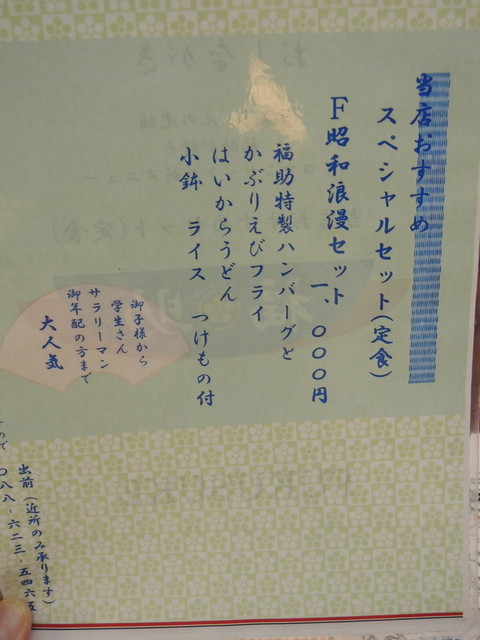 当店おすすめ
スペシャルセット(定食)
F昭和浪漫セット 一、〇〇〇円
福助特製ハンバーグと
かぶりえびフライ
はいからうどん
小鉢 ライス つけもの付
御子様から
学生さん
サラリーマン
御年配の方まで
大人気
出前(近所のみ承ります)
〇八八-六二三-五四六五